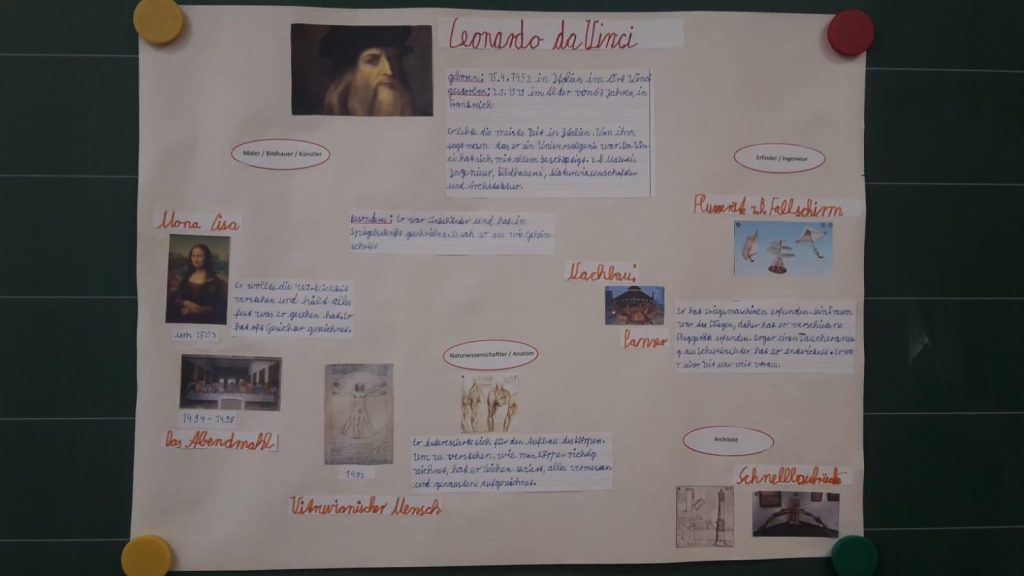 Leonardo da Vinci
geboren: 15.4.1452 in Italien im Ort Vinci
gestorben: 2.5.1519 im Alter von 67 Jahren in
Frankreich
Er lebte die meiste Zeit in Italien. Von ihm
sagt man das er ein Universalgenie war. Da Vin
ci hat sich mit allem beschäftigt. z.B. Malerei
Ingenieur, Bildhauerei, Naturwissenschaftler
und Architektur.
Maler / Bildhauer / Künstler
Erfinder / Ingenieur
Besonderes: Er war Linkshänder und hat in
Spiegelschrift geschrieben. Es sah so aus wie Geheim-
schrift
Mona Lisa
um 1503
Er wollte die Wirklichkeit
verstehen und hielt alles
fest was er gesehen hat. Er
hat oft Gesichter gezeichnet.
1494-1498
Das Abendmahl
1492
Vitruvianischer Mensch
Naturwissenschaftler / Anatom
Er interessierte sich für den Aufbau des Körpers.
Um zu verstehen, wie man Körper richtig
zeichnet, hat er Leichen seziert, alles vermessen
und genaustens aufgezeichnet.
Nachbau:
Panzer
z.B. Fallschirm
Er hat Kriegsmaschinen erfunden. sein Traum
war das Fliegen, daher hat er verschiedene
Fluggeräte erfunden. Sogar einen Taucheranzu
g aus Schweineleder hat er entwickelt. Er war
seiner Zeit sehr weit voraus.
Architekt